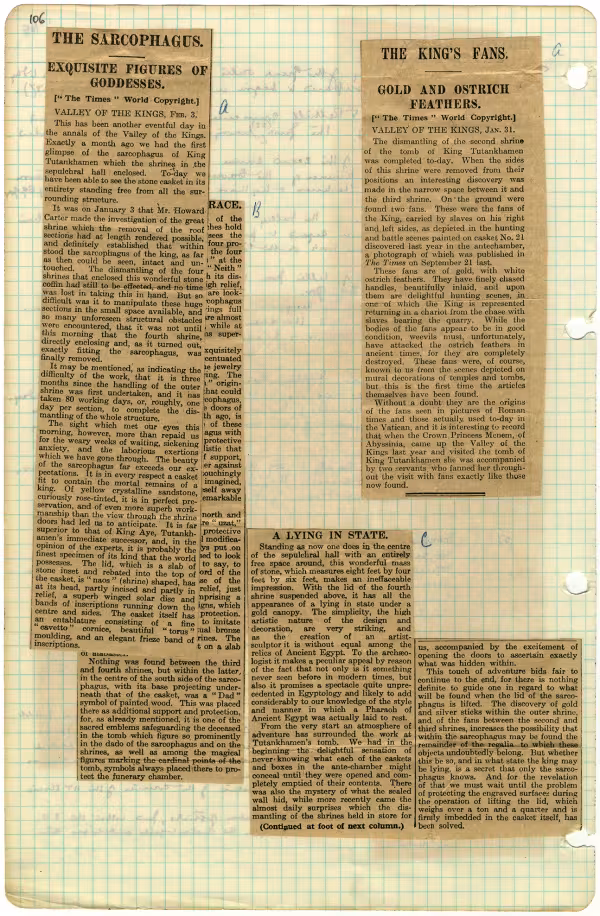 106
THE SARCOPHAGUS.
EXQUISITE FIGURES OF
GODDESSES.
["The Times" World Copyright.]
VALLEY OF THE KINGS, FEB. 3.
This has been another eventful day in
the annals of the Valley of the Kings.
Exactly a month ago we had the first
glimpse of the sarcophagus of King
Tutankhamen which the shrines in the
sepulchral hall enclosed. To-day we
have been able to see the stone casket in its
entirety standing free from all the sur-
rounding structure.
It was on January 3 that Mr. Howard
Carter made the investigation of the great
shrine which the removal of the roof
sections had at length rendered possible,
and definitely established that within
stood the sarcophagus of the king, as far
as then could be seen, intact and un-
touched. The dismantling of the four
shrines that enclosed this wonderful stone
coffin had still to be effected, and no time
was lost in taking this in hand. But so
difficult was it to manipulate these huge
sections in the small space available, and
so many unforeseen structural obstacles
were encountered, that it was not until
this morning that the fourth shrine,
directly enclosing and, as it turned out,
exactly fitting the sarcophagus, was
finally removed.
It may be mentioned, as indicating the
difficulty of the work, that it is three
months since the handling of the outer
shrine was first undertaken, and it has
taken 80 working days, or, roughly, one
day per section, to complete the dis-
mantling of the whole structure.
The sight which met our eyes this
morning, however, more than repaid us
for the weary weeks of waiting, sickening
anxiety, and the laborious exertions
which we have gone through. The beauty
of the sarcophagus far exceeds our ex-
pectations. It is in every respect a casket
fit to contain the mortal remains of a
king. Of yellow crystalline sandstone,
curiously rose-tinted, it is in perfect pre-
servation, and of even more superb work-
manship than the view through the shrine
doors had led us to anticipate. It is far
superior to that of King Aye, Tutankh-
amen's immediate successor, and, in the
opinion of the experts, it is probably the
finest specimen of its kind that the world
possesses. The lid, which is a slab of
stone inset and rebated into the top of
the casket, is "naos" (shrine) shaped, has
at its head, partly incised and partly in
relief, a superb winged solar disc and
bands of inscriptions running down the
centre and sides. The casket itself has
an entablature consisting of a fine
"cavetto" cornice, beautiful "torus"
moulding, and an elegant frieze band of
inscriptions.
a
RACE.
of the
hes hold
sees the
four pro-
the four
" at the
" Neith "
h its dis-
gh relief,
are look-
cophagus
ings full
re almost
while at
s super-
xquisitely
centuated
e jewelry
ing. The
" origin-
hat could
cophagus,
doors of
th ago, is
of these
agus with
protective
listic that
f support,
er against
ouchingly
imagined,
self away
emarkable
north and
re "usat,"
protective
modifica-
ys put on
sed to look
to say, to
ord of the
se of the
relief, just
mprising a
igns, which
protection.
to imitate
ual bronze
rines. The
t on a slab
B
of alabaster.
Nothing was found between the third
and fourth shrines, but within the latter,
in the centre of the south side of the sarco-
phagus, with its base projecting under-
neath that of the casket, was a "Dad"
symbol of painted wood. This was placed
there as additional support and protection,
for, as already mentioned, it is one of the
sacred emblems safeguarding the deceased
in the tomb which figure so prominently
in the dado of the sarcophagus and on the
shrines, as well as among the magical
figures marking the cardinal points of the
tomb, symbols always placed there to pro-
tect the funerary chamber.
THE KING'S FANS.
GOLD AND OSTRICH
FEATHERS.
["The Times" World Copyright.]
VALLEY OF THE KINGS, JAN. 31.
The dismantling of the second shrine
of the tomb of King Tutankhamen
was completed to-day. When the sides
of this shrine were removed from their
positions an interesting discovery was
made in the narrow space between it and
the third shrine. On the ground were
found two fans. These were the fans of
the King, carried by slaves on his right
and left sides, as depicted in the hunting
and battle scenes painted on casket No. 21
discovered last year in the antechamber,
a photograph of which was published in
The Times on September 21 last.
These fans are of gold, with white
ostrich feathers. They have finely chased
handles, beautifully inlaid, and upon
them are delightful hunting scenes, in
one of which the King is represented
returning in a chariot from the chase with
slaves bearing the quarry. While the
bodies of the fans appear to be in good
condition, weevils must, unfortunately,
have attacked the ostrich feathers in
ancient times, for they are completely
destroyed. These fans were, of course,
known to us from the scenes depicted on
mural decorations of temples and tombs,
but this is the first time the articles
themselves have been found.
Without a doubt they are the origins
of the fans seen in pictures of Roman
times and those actually used to-day in
the Vatican, and it is interesting to record
that when the Crown Princess Menem, of
Abyssinia, came up the Valley of the
Kings last year and visited the tomb of
King Tutankhamen she was accompanied
by two servants who fanned her through-
out the visit with fans exactly like those
now found.
a
A LYING IN STATE.
Standing as now one does in the centre
of the sepulchral hall with an entirely
free space around, this wonderful mass
of stone, which measures eight feet by four
feet by six feet, makes an ineffaceable
impression. With the lid of the fourth
shrine suspended above, it has all the
appearance of a lying in state under a
gold canopy. The simplicity, the high
artistic nature of the design and
decoration, are very striking, and
as the creation of an artist-
sculptor it is without equal among the
relics of Ancient Egypt. To the archæo-
logist it makes a peculiar appeal by reason
of the fact that not only is it something
never seen before in modern times, but
also it promises a spectacle quite unpre-
cedented in Egyptology and likely to add
considerably to our knowledge of the style
and manner in which a Pharaoh of
Ancient Egypt was actually laid to rest.
From the very start an atmosphere of
adventure has surrounded the work at
Tutankhamen's tomb. We had in the
beginning the delightful sensation of
never knowing what each of the caskets
and boxes in the ante-chamber might
conceal until they were opened and com-
pletely emptied of their contents. There
was also the mystery of what the sealed
wall hid, while more recently came the
almost daily surprises which the dis-
mantling of the shrines held in store for
(Continued at foot of next column.)
C
us, accompanied by the excitement of
opening the doors to ascertain exactly
what was hidden within.
This touch of adventure bids fair to
continue to the end, for there is nothing
definite to guide one in regard to what
will be found when the lid of the sarco-
phagus is lifted. The discovery of gold
and silver sticks within the outer shrine,
and of the fans between the second and
third shrines, increases the possibility that
within the sarcophagus may be found the
remainder of the regalia to which these
objects undoubtedly belong. But whether
this be so, and in what state the king may
be lying, is a secret that only the sarco-
phagus knows. And for the revelation
of that we must wait until the problem
of protecting the engraved surfaces during
the operation of lifting the lid, which
weighs over a ton and a quarter and is
firmly imbedded in the casket itself, has
been solved.